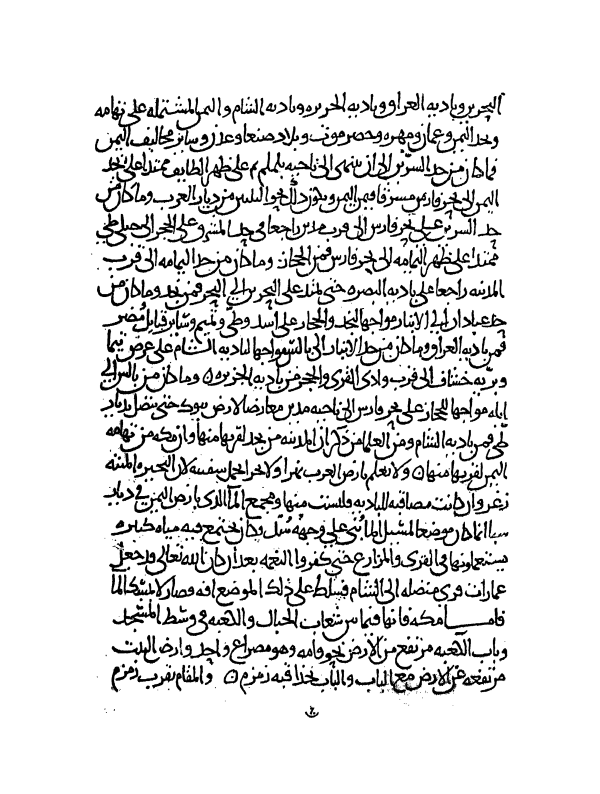 البحرين وباديه العراق وباديه الجزيره وباديه الشام واليمن المشتمله على تهامه
ونجد اليمن وعمان ومهره وحضرموت وبلاد صنعا وعدن وساير مخاليف اليمن
فما كان من حد السرين الى ان ينتهى الى ناحيه يلملم ثم على ظهر الطايف ممتدا على نجد
اليمن الى بحر فارس مشرقا فمن اليمن ويكون ذلك نحو الثلثين من ديار العرب وما كان من
حد السرين على بحر فارس الى قرب مدين راجعا فى حد المشرق على الحجر الى جبلى طى
ممتدا على ظهر اليمامه الى بحر فارس فمن الحجاز وما كان من حد اليمامه الى قرب
المدينه راجعا على باديه البصره حتى يمتد على البحرين الى البحر فمن نجد وما كان من
حد عبادان الى الانبار مواجها لنجد والحجاز على اسد وطى وتميم وساير قبايل مضر
فمن باديه العراق وما كان من حد الانبار الى بالس مواجها لباديه الشام على عرض تيما
وبريه خساف الى قرب وادى القرى والحجر فمن باديه الجزيره وما كان من بالس الى
ايله مواجها للحجاز على بحر فارس الى ناحيه مدين معارضا لارض تبوك حتى يتصل بديار
طى فمن باديه الشام ومن العلما من ذكر ان المدينه من نجد لقربها منها وان مكه من تهامه
اليمن لقربها منها ولا نعلم بارض العرب نهرا ولا بحرا يحمل سفينه لان البحيره المنتنه
زغر وان كانت مصاقبه للباديه فليست منها ومجمع الما الذى بارض اليمن فى ديار
سبا انما كان موضعا لمسيل الما بنى على وجهه سد وكان يجتمع فيه مياه كثيره
يستعملونها فى القرى والمزارع حتى كفروا النعمه بعد ان كان الله تعالى قد جعل
عمارات قرى متصله الى الشام فسلط على ذلك الموضع افه وصار لا يمسك الما
فامـا مكه فانها فيما بين شعاب الجبال والكعبه فى وسط المسجد
وباب الكعبه مرتفع من الارض نحو قامه وهو مصراع واحد وارض البيت
مرتفعه عن الارض مع الباب والباب بحذا قبه زمزم والمقام بقرب زمزم
٢٠